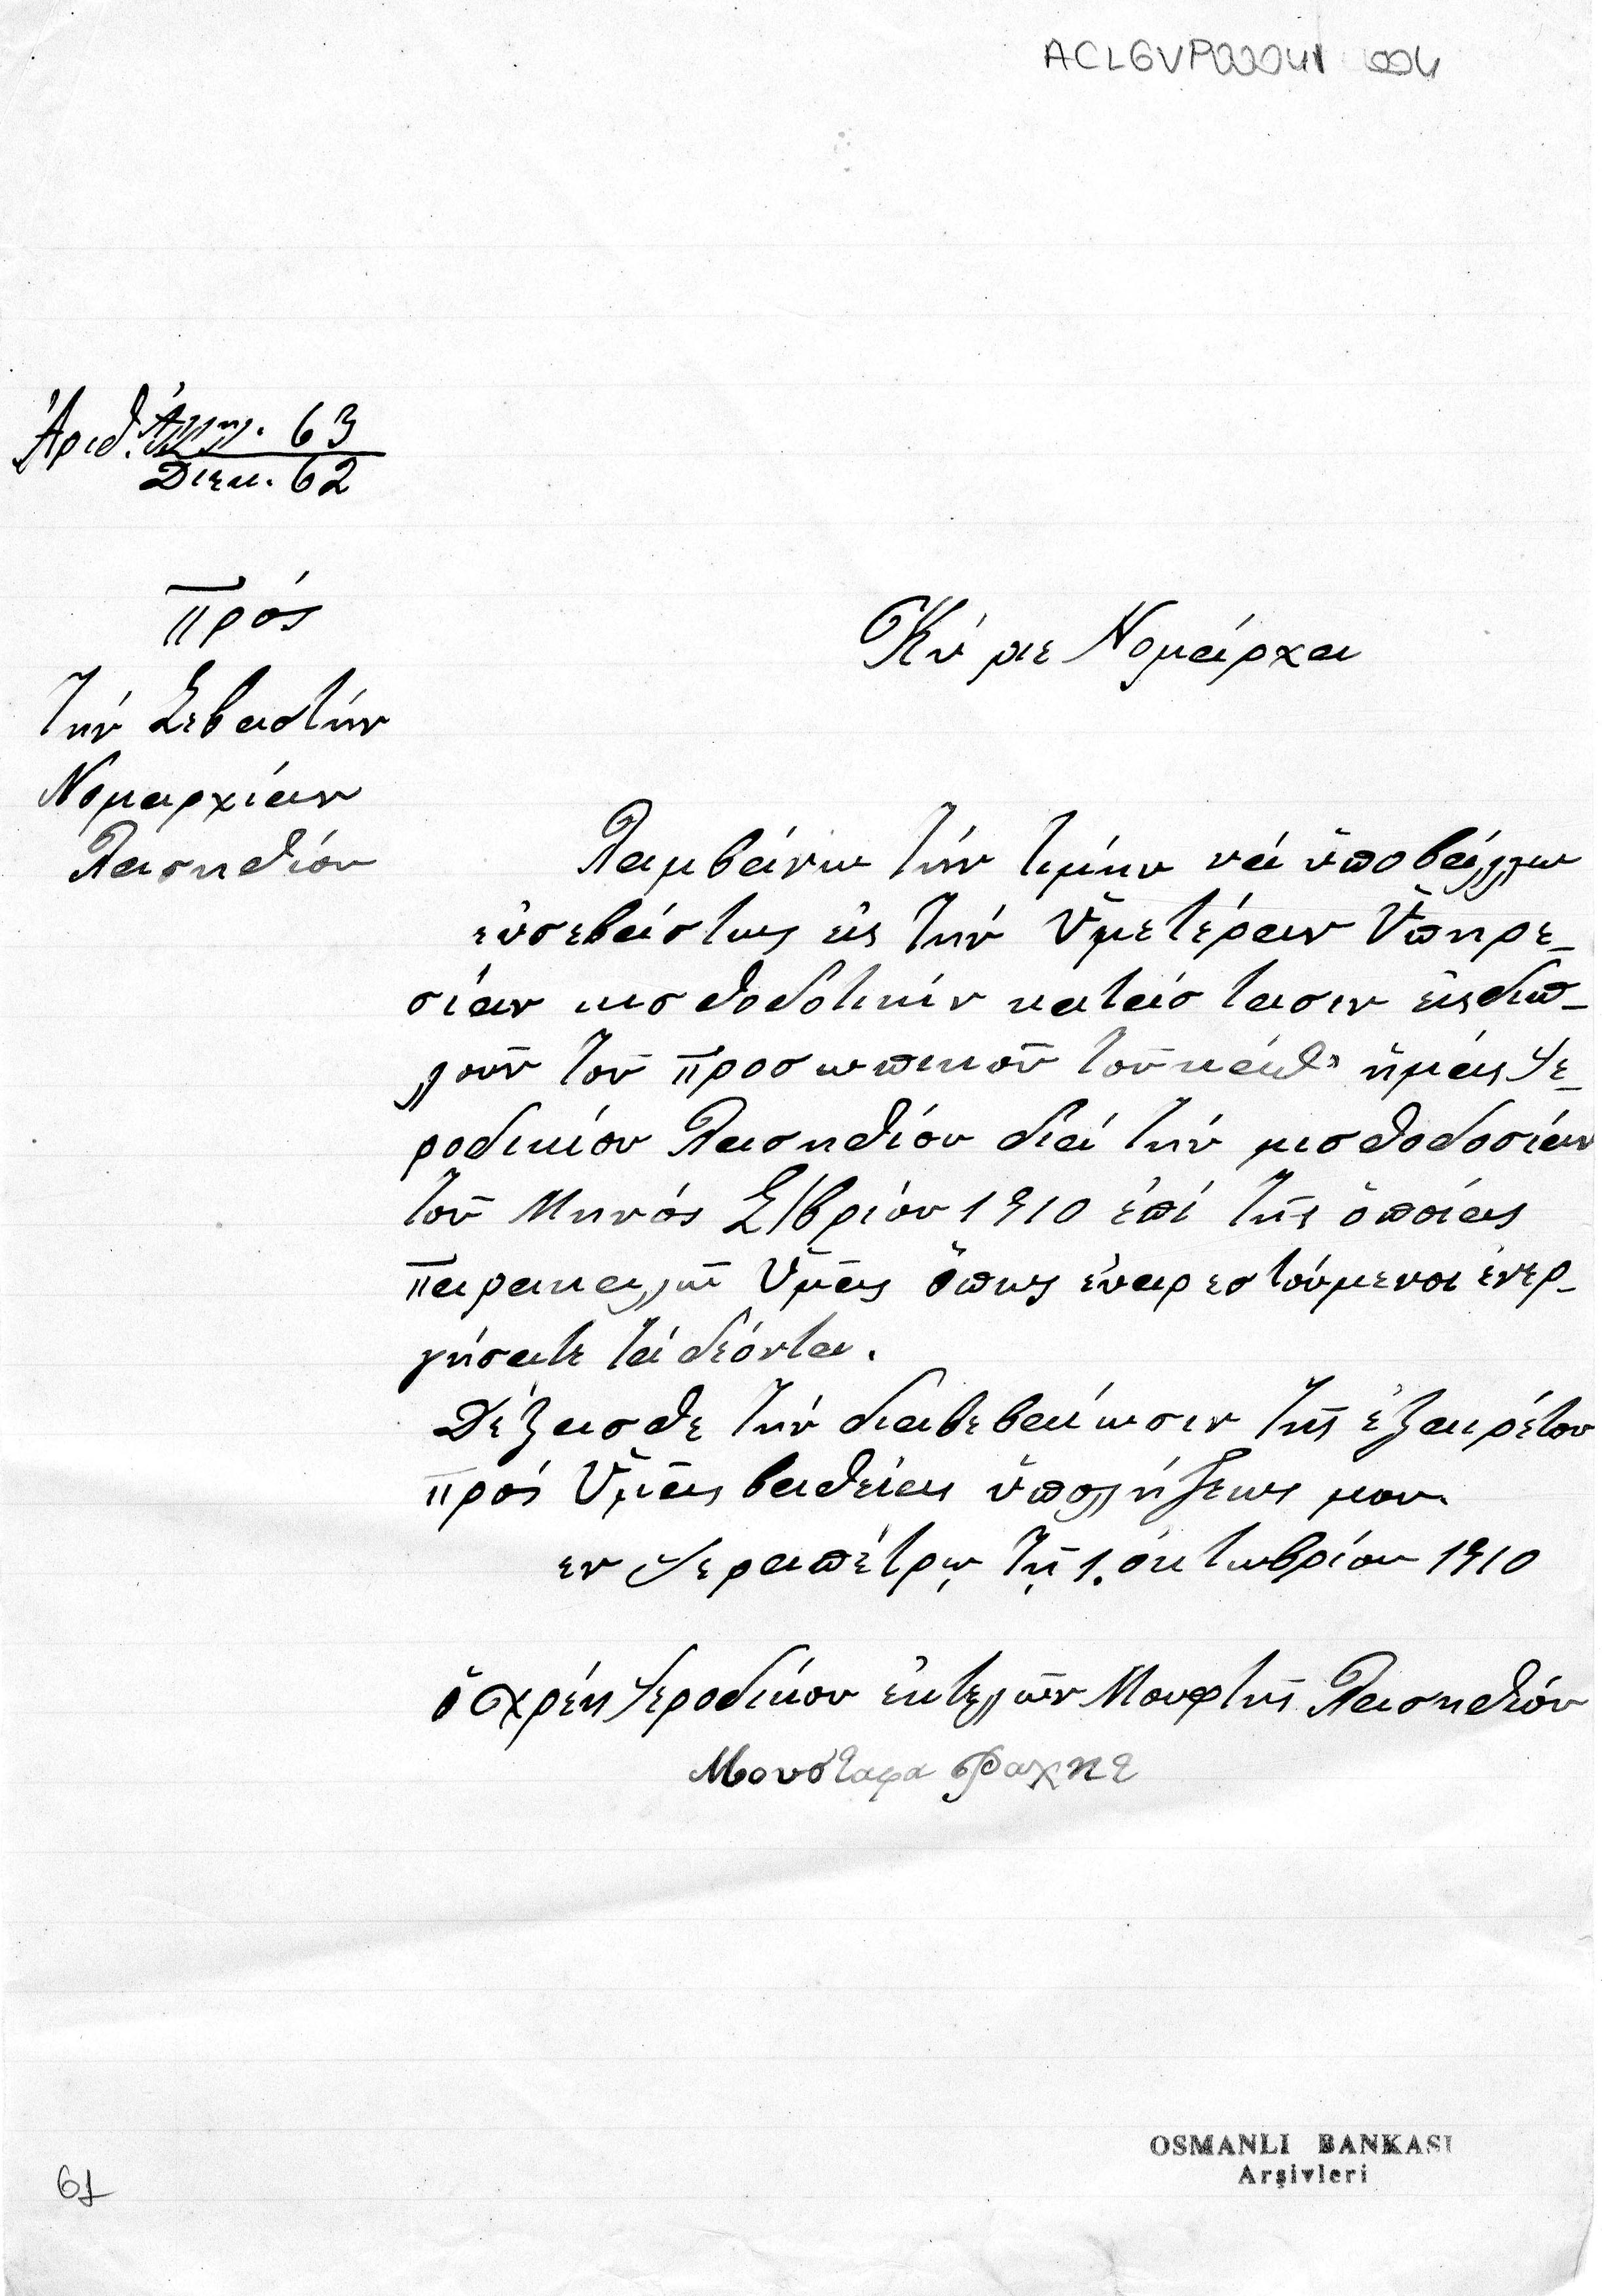 ACLGVP00041 004
Ἀριθ. 63
Διεκ. 62
Πρός
τήν Σεβαστήν
Νομαρχίαν
Λασηθίου
Κύριε Νομάρχα
Λαμβάνω τήν τιμήν νά ὑποβάλλω
εὐσεβάστως εἰς τήν Ὑμετέραν Ὑπηρε-
σίαν μισθοδοτικήν κατάστασιν εἰς διπ-
λοῦν τοῦ προσωπικοῦ τοῦ καθ' ἡμάς Ἱε-
ροδικίου Λασηθίου διά τήν μισθοδοσίαν
τοῦ Μηνός Σ/βρίου 1910 ἐπί τῆς ὁποίας
παρακαλῶ Ὑμᾶς ὅπως εὐαρεστούμενοι ἐνερ-
γήσατε τά δέοντα.
Δέξασθε τήν διαβεβαίωσιν τῆς ἐξαιρέτου
πρός Ὑμᾶς βαθείας ὑπολήψεως μου.
εν Ἱεραπέτρᾳ τῇ 1. ὀκτωβρίου 1910
ὁ χρέη Ἱεροδίκου ἐκτελῶν Μουφτῆς Λασηθίου
Μουσταφα Φαχκη
OSMANLI BANKASI
Arşivleri
61